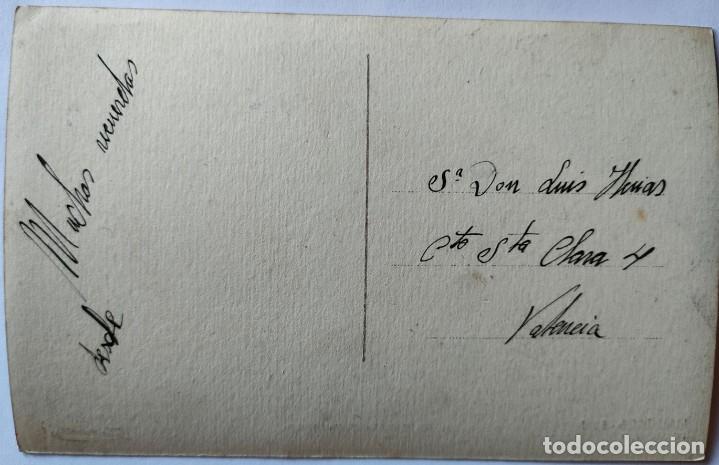 Muchos recuerdos
desde
Sª Don Luis
Cto Sta Clara 4
Valencia
todocoleccion.net